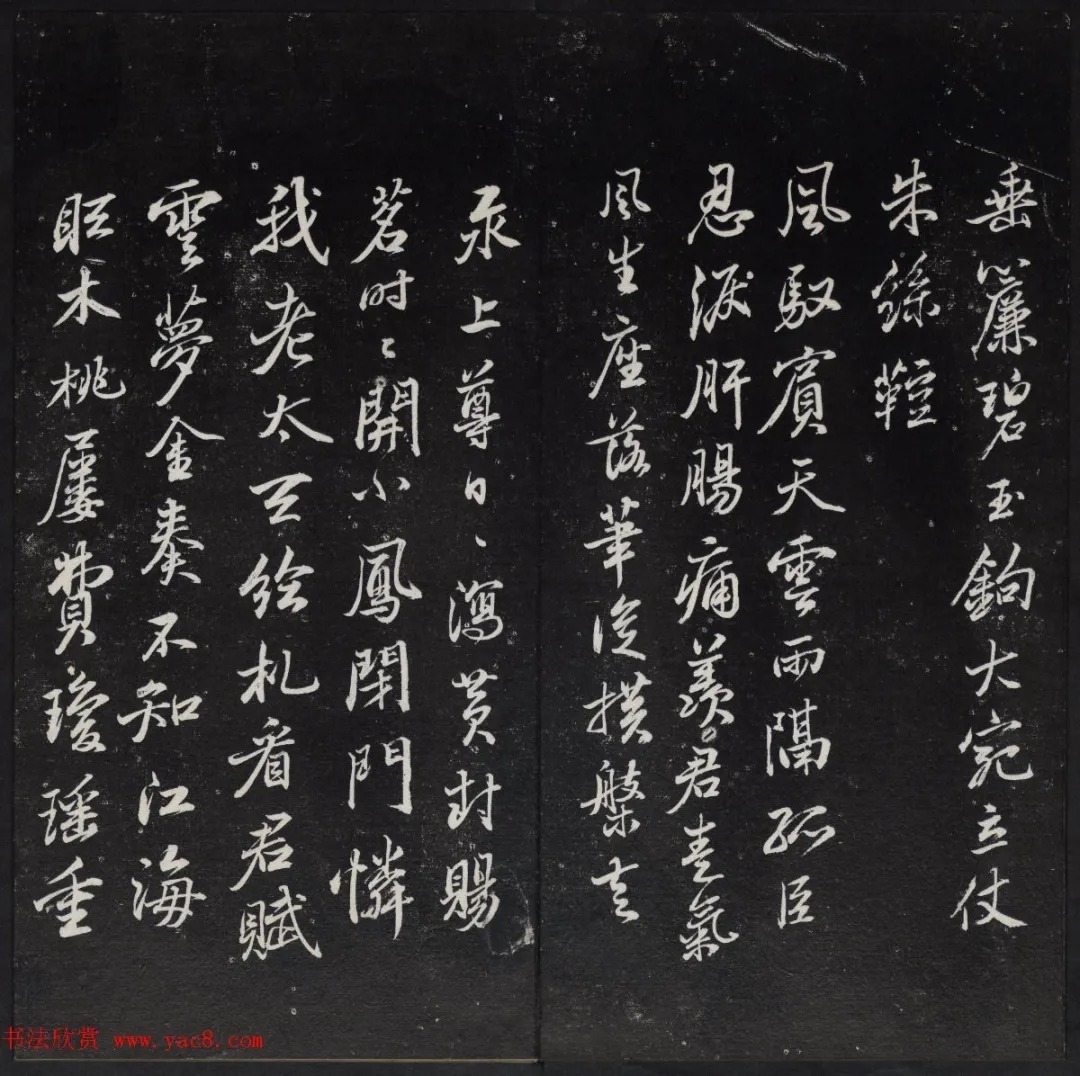 垂簾碧玉鉤大宛立仗
朱絲鞚
風馭賓天雲雨隔孤臣
忍淚肝腸痛羨君意氣
風生座落筆從橫槃走
汞上尊日〻瀉黃封賜
茗時〻開小鳳閉門憐
我老太玄給札看君賦
雲夢金奏不知江海
眩木桃屢費瓊瑤重
书法欣赏 www.yac8.com